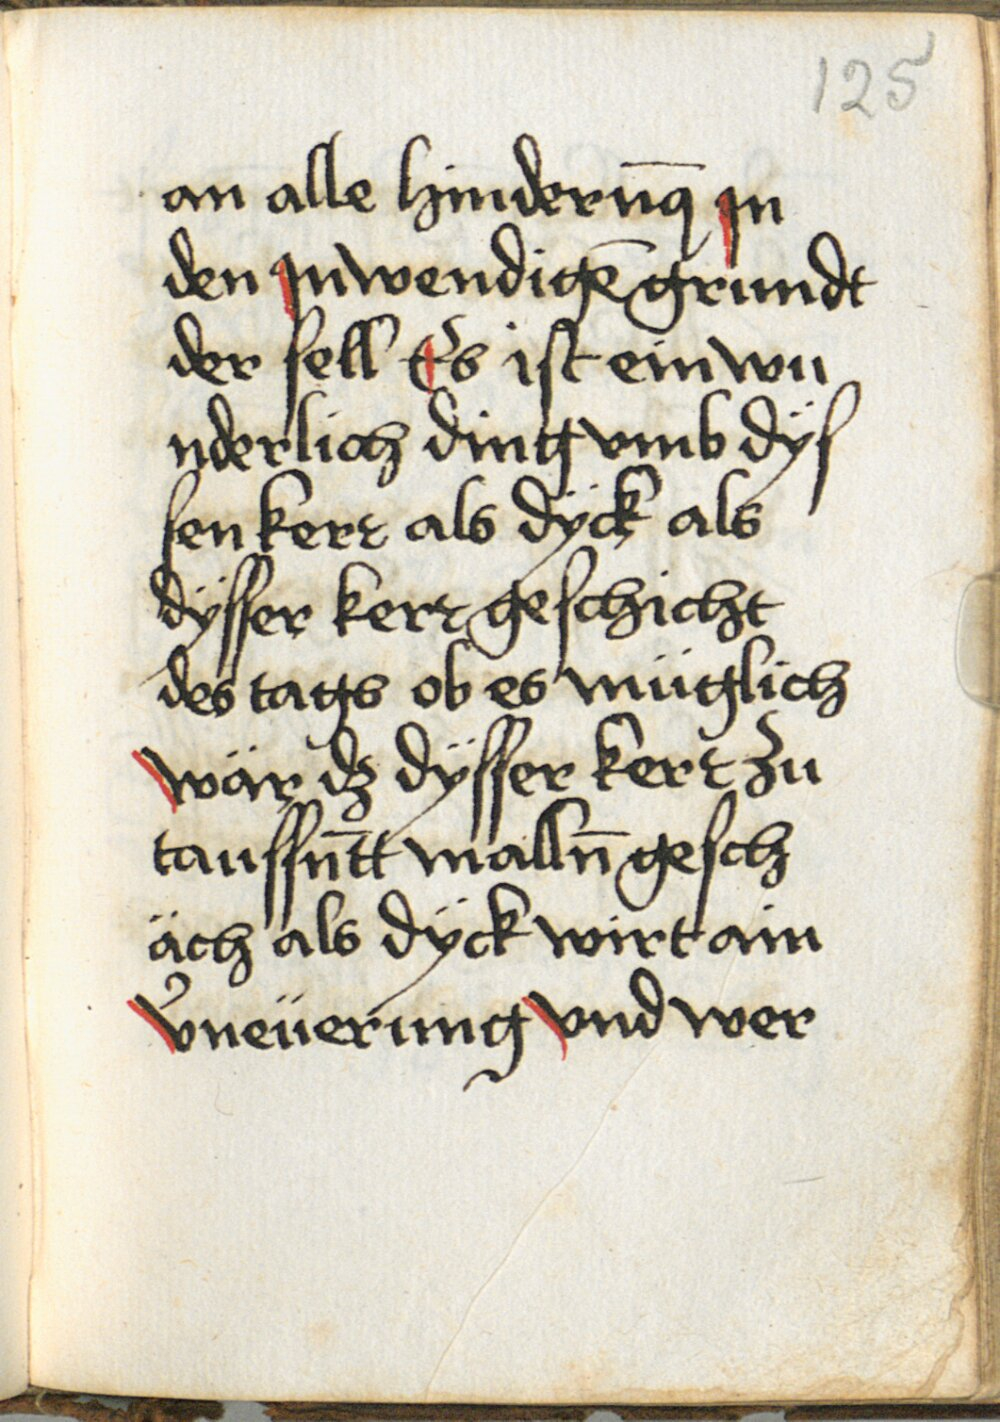 125
an alle hindernu̅g in
den inwendige̅ grundt
der sell Es ist ein wu
nderlich ding vmb dÿs
sen kert als dÿck als
dÿsser kert geschicht
des tags ob es müglich
wär dz dÿsser kert zu
taussn̅tt malln̅ gesch
äch als dÿck wirt ain
v̉neüerung vnd wer